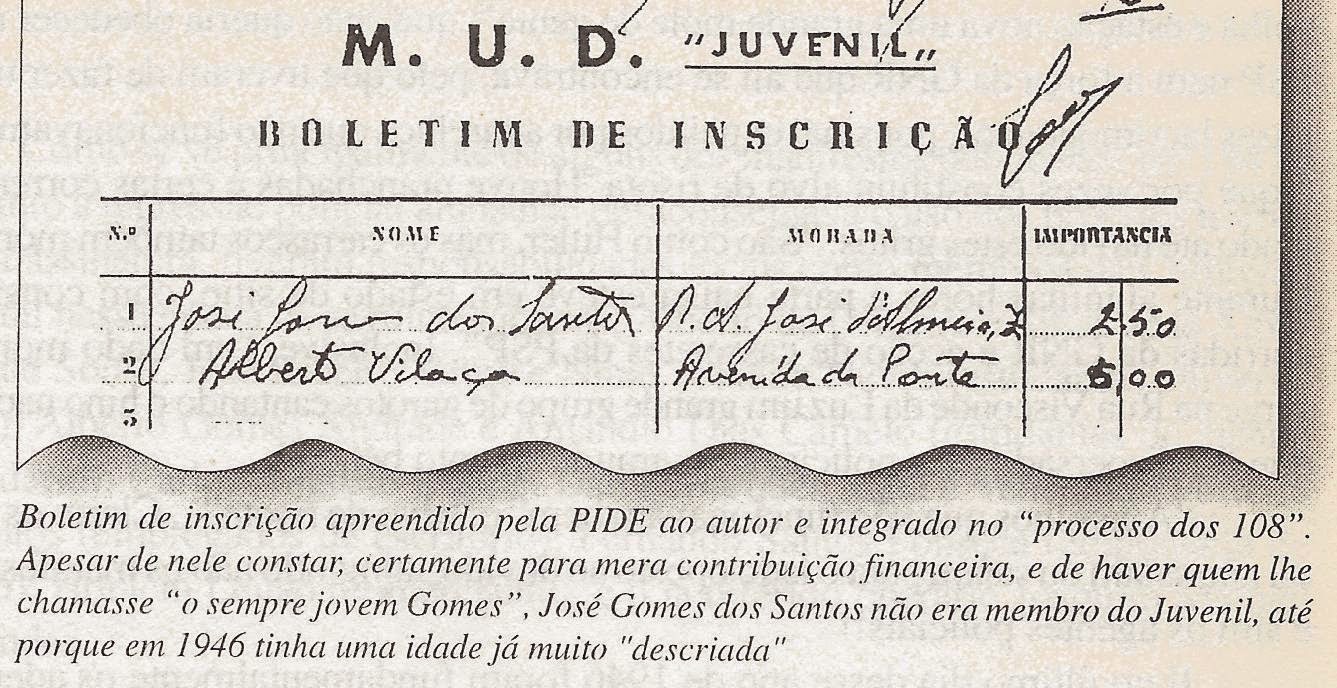 M. U. D. "JUVENIL"
BOLETIM DE INSCRIÇÃO
N.º NOME MORADA IMPORTANCIA
1 José Gomes dos Santos R. A. José d'Almeida, 2.50
2 Alberto Vilaça Avenida da Ponte 5,00
3
Boletim de inscrição apreendido pela PIDE ao autor e integrado no “processo dos 108”.
Apesar de nele constar, certamente para mera contribuição financeira, e de haver quem lhe
chamasse “o sempre jovem Gomes”, José Gomes dos Santos não era membro do Juvenil, até
porque em 1946 tinha uma idade já muito "descriada"